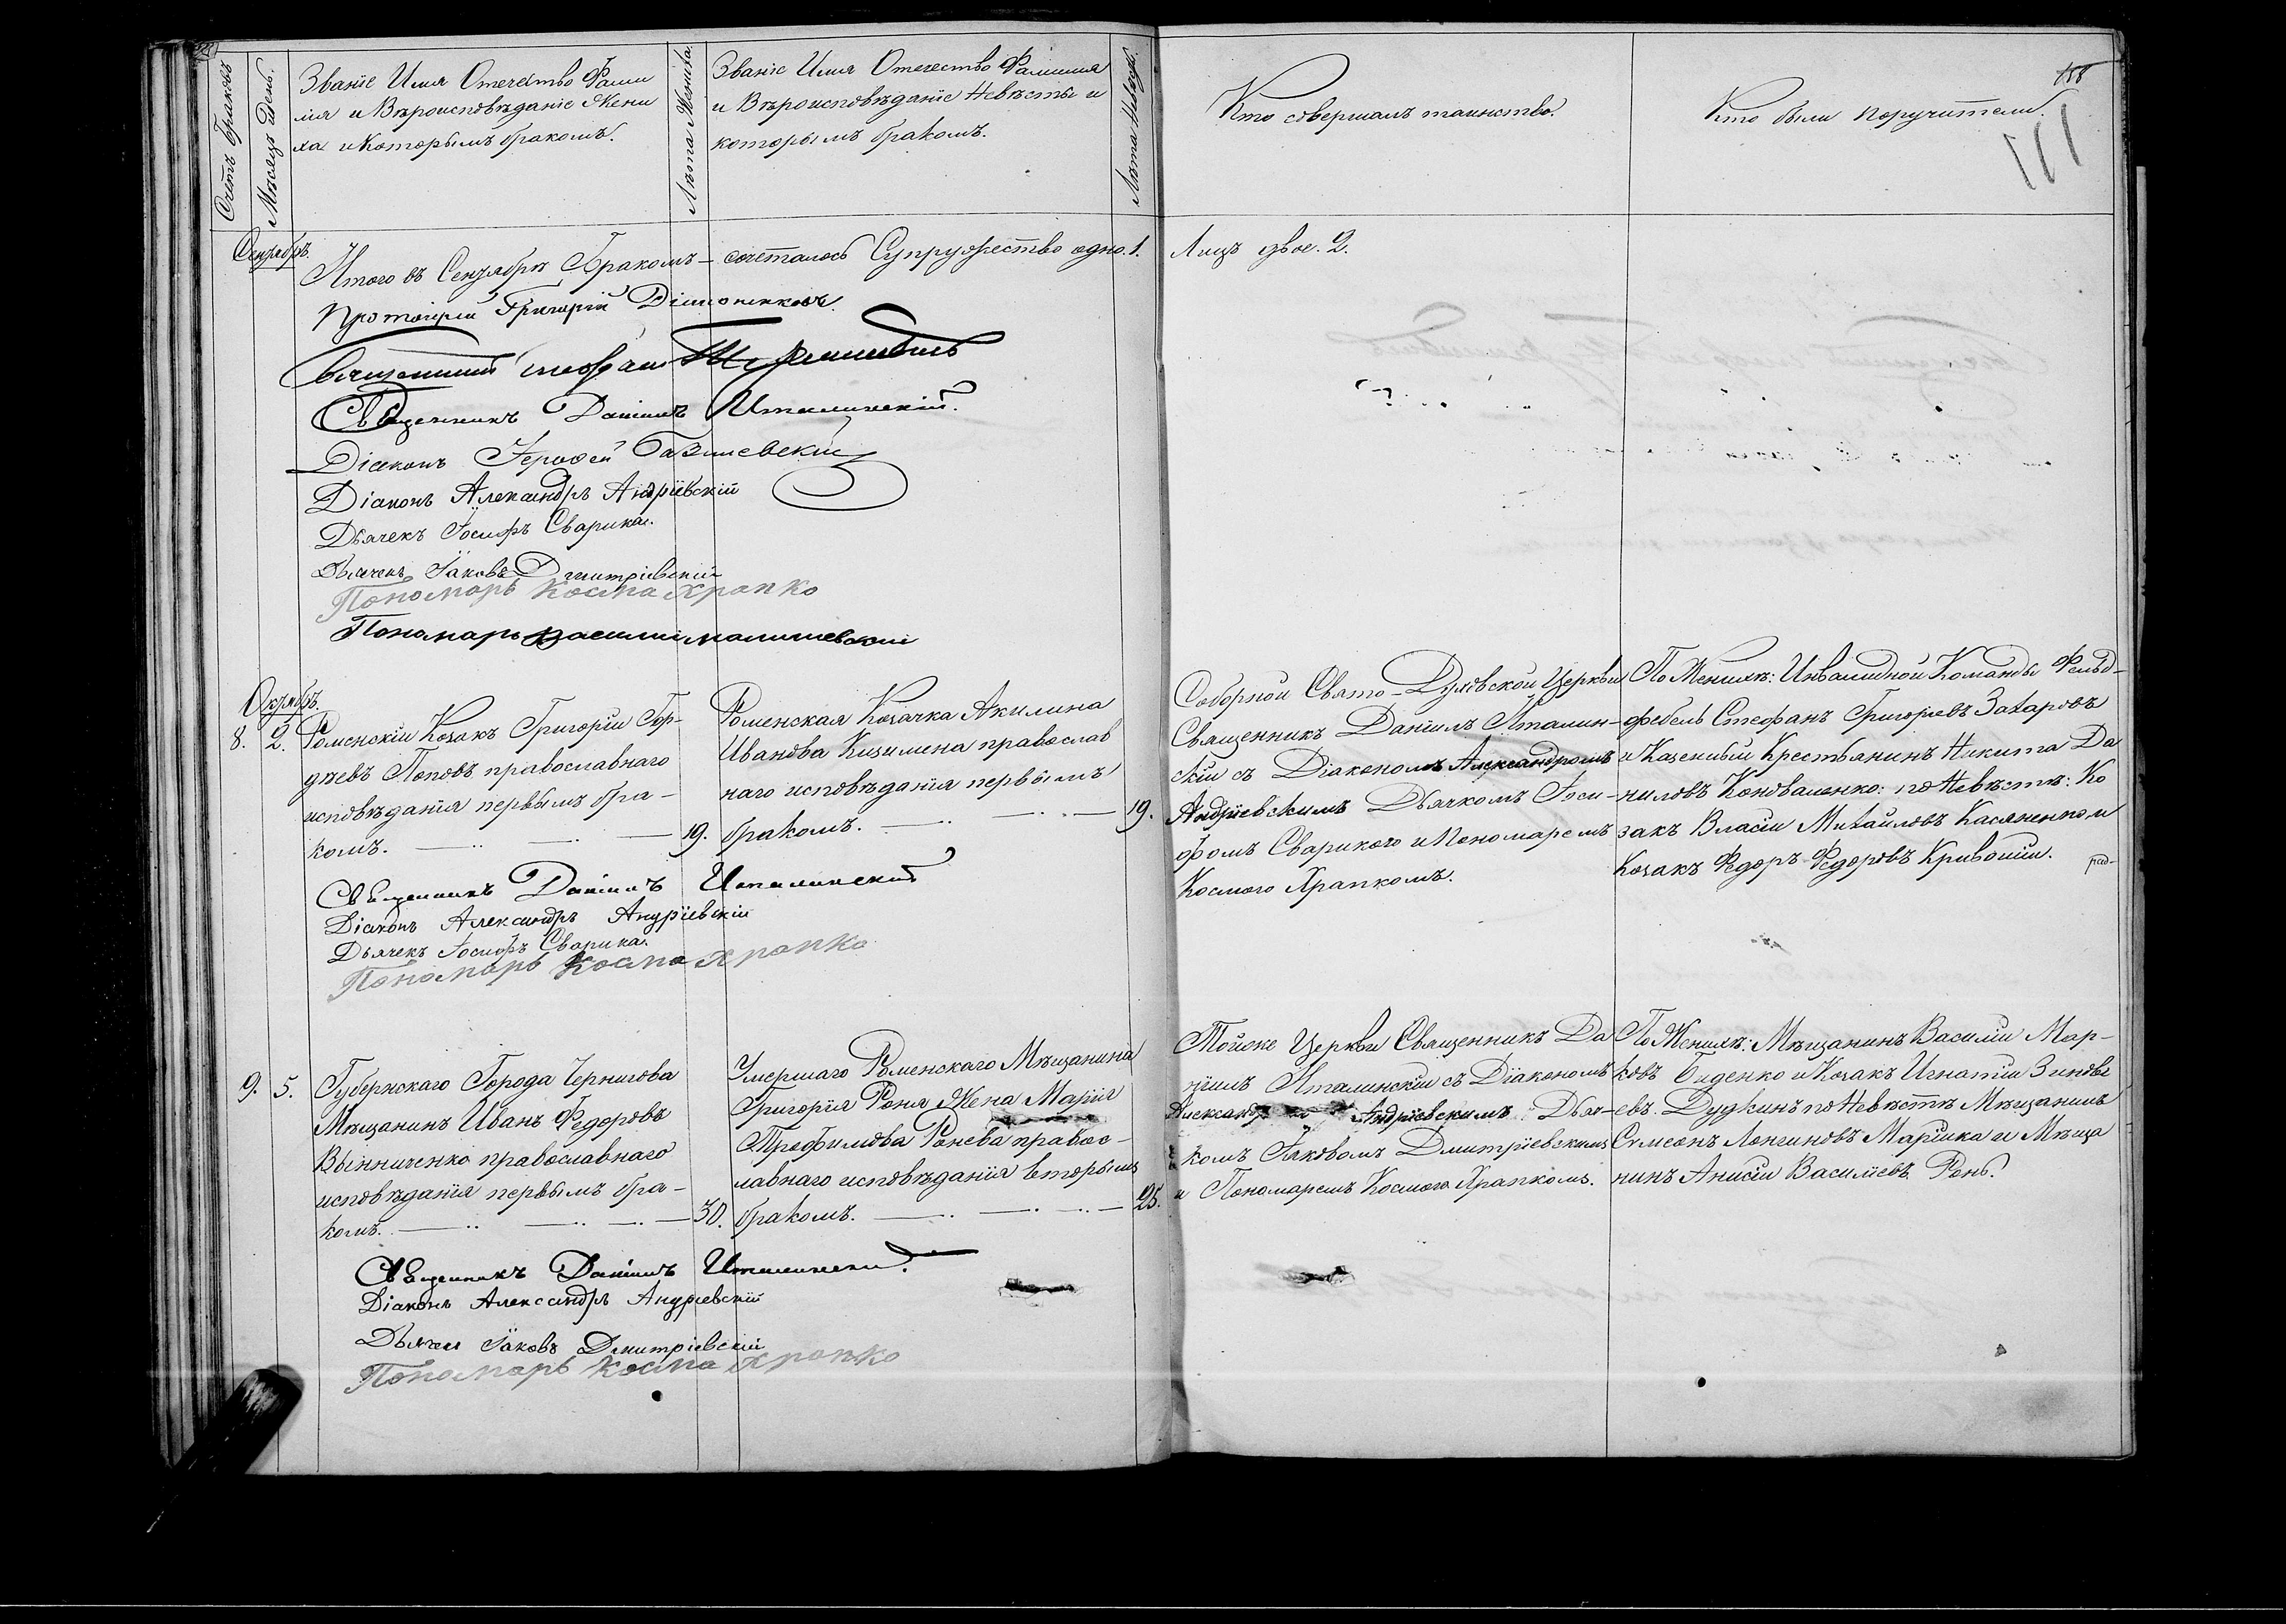 Счетъ браковъ
Мѣсяцъ и День.
Званіе Имя Отечество Фами
лія и Вѣроисповѣданіе Жени
ха и Которымъ бракомъ.
Лѣта Жениха
Званіе Имя Отечество Фамилія
и Вѣроисповѣданіе Невѣсты и
которымъ бракомъ.
Лѣта Невѣсты.
Кто совершалъ таинство.
Кто были поручители.
158
111
Сентябрь.
Итого въ Сентябрѣ Бракомъ — сочеталось Супружество одно. 1. Лицъ двое. 2.
Протоіерей Григорій
Священникъ Стефанъ
Священникъ Даніилъ Италинскій.
Діаконъ Іерофей Базилевскій
Діаконъ Александръ Андріевскій
Дьячекъ Іосифъ Сварика.
Дьячекъ Іаковъ Дмитріевскій
Пономарь Косма Храпко
Пономарь Василій Малишевскій
Октябрь.
8. 2. Роменскій Козакъ Григорій Гор-
дѣевъ Поповъ православнаго
исповѣданія первымъ бра-
комъ. 19.
Роменская Козачка Акилина
Иванова Кизимена православ
наго исповѣданія первымъ
бракомъ. 19.
Соборной Свято-Духовской Церкви
Священникъ Даніилъ Италин-
скій съ Діакономъ Александромъ
Андріевскимъ Дьячкомъ Іоси-
фомъ Сварикого и Пономаремъ
Космого Храпкомъ.
По Женихѣ: Инвалидной Команды Фельд-
фебель Стефанъ Григорьевъ Захаровъ
и Казенный Крестьянинъ Никита Да
ниловъ Коноваленко: по Невѣстѣ: Ко
закъ Власій Михайловъ Касяненко и
Козакъ Федоръ Федоровъ Кривошій.
Священникъ Даніилъ Италинскій
Діаконъ Александръ Андріевскій
Дьячекъ Іосифъ Сварика.
Пономарь Косма Храпко
9. 5. Губернскаго Города Чернигова
Мѣщанинъ Иванъ Федоровъ
Вынниченко православнаго
исповѣданія первымъ бра-
комъ. 30.
Умершаго Роменскаго Мѣщанина
Григорія Роня Жена Марія
Трофимова Ронева правос-
лавнаго исповѣданія вторымъ
бракомъ. 25.
Тойже Церкви Священникъ Да
ніилъ Италинскій съ Діакономъ
Андріевскимъ Дьяч-
комъ Іаковомъ Дмитріевскимъ
и Пономаремъ Космого Храпкомъ.
По Женихѣ: Мѣщанинъ Василій Мар-
ковъ Биденко и Козакъ Игнатій Зиновь
евъ Дудкинъ по Невѣстѣ Мѣщанинъ
Симеонъ Лонгиновъ Маріика и Мѣща
нинъ Анисій Василіевъ Ронь.
Священникъ Даніилъ Италинскій.
Діаконъ Александръ Андріевскій
Дьячекъ Іаковъ Дмитріевскій
Пономарь Косма Храпко